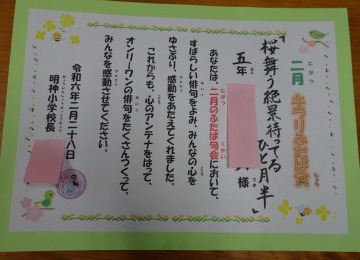 二月
「桜舞う絶景待ってる
ひと月半」
五年
様
あなたは、二月のふたば句会において、
すばらしい俳句をよみ、みんなの心を
ゆさぶり、感動をあたえてくれました。
これからも、心のアンテナをはって、
オンリーワンの俳句をたくさんつくって、
みんなを感動させてください。
令和六年二月二十八日
明神小学校長